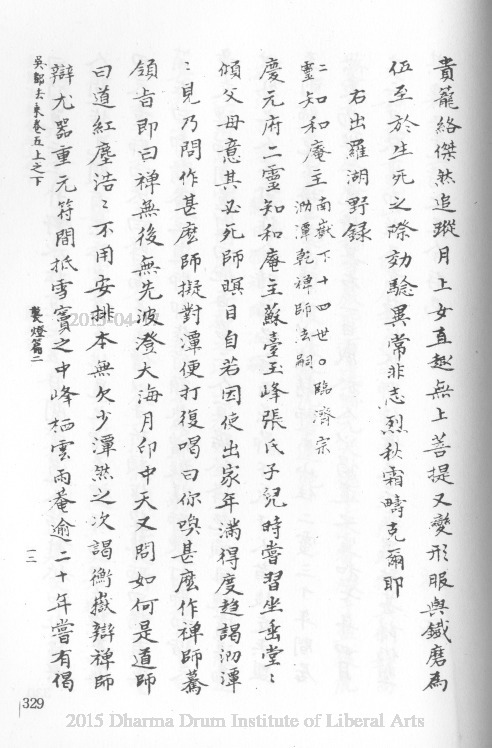 貴籠絡傑然追蹤月上女直趣無上菩提又變形服與鐵磨為
伍至於生死之際効驗異常非志烈秋霜疇克爾耶
右出羅湖野錄
二靈知和庵主南嶽下十四世。臨濟宗
泐潭乾禪師法嗣
慶元府二靈知和庵主蘇臺玉峰張氏子兒時嘗習坐垂堂〻
傾父母意其必死師瞑目自若因使出家年滿得度趨謁泐潭
〻見乃問作甚麼師擬對潭便打復喝曰你喚甚麼作禪師驀
領旨即曰禪無後無先波澄大海月印中天又問如何是道師
曰道紅塵浩〻不用安排本無欠少潭然之次謁衡嶽辯禪師
辯尤器重元符間抵雪竇之中峰栖雲兩菴逾二十年嘗有偈
吳都法乘卷五上之下
製燈篇二
一三
329
2015-04-17
2015 Dharma Drum Institute of Liberal Arts